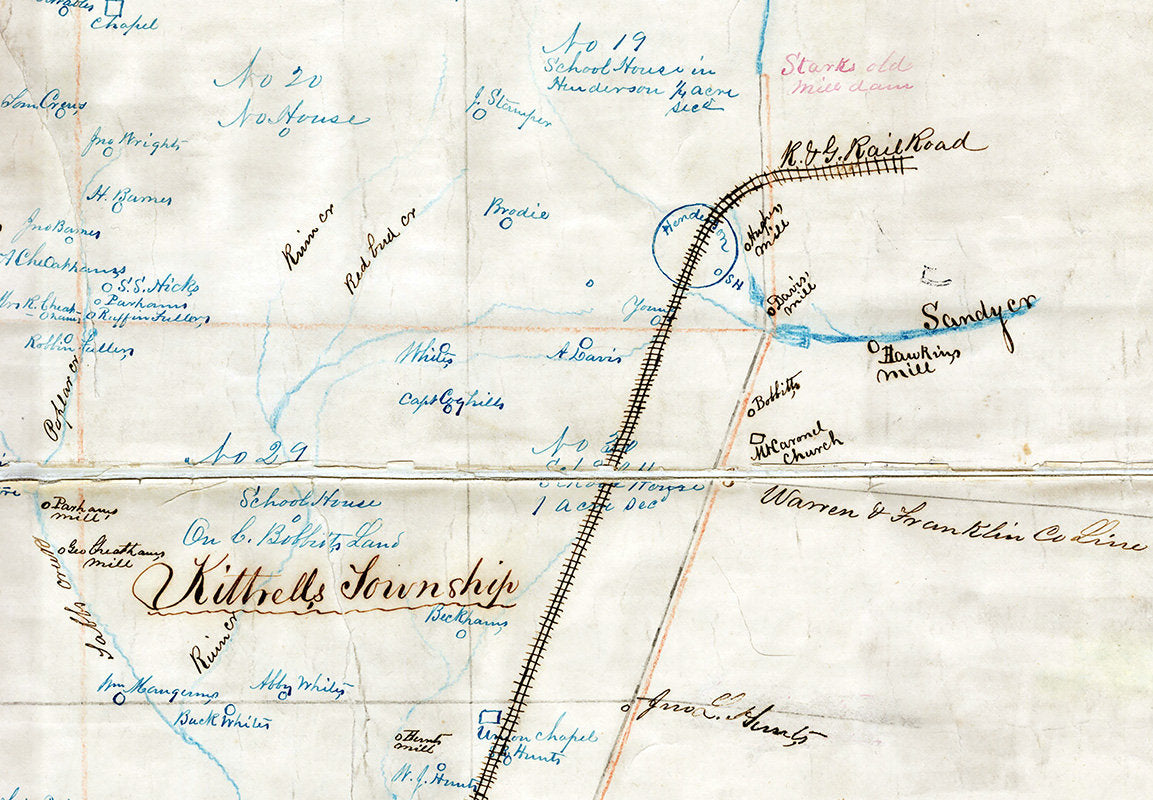 Chapel
No 20
No House
No 19
School House in
Henderson ½ acre
Starks old
mill dam
Tom Crews
J. Stamper
Jno Wrights
R. & G. Rail Road
H. Barnes
Brodie
Jno Barnes
Henderson
SH
Hughs
mill
Ruin cr
Red bud cr
A Cheathams
S. S. Hicks
Parhams
Mrs R. Cheat-
hams
Ruffin Fullers
Robbin Fullers
Young
Davis'
mill
Sandy cr
Hawkins
mill
Whites
A. Davis
Capt Coghills
Poplar cr
Bobbitts
Mt Carmel
Church
No 29
School House
On C. Bobbitts Land
No 30
School House
1 acre Dec
Warren & Franklin Co Line
Parhams
mill
Geo Cheathams
mill
Kittrells Township
Beckhams
Tabbs
Ruin cr
Wm Mangums
Abby Whites
Buck Whites
Jno L. Hunts
Hunts
mill
Union Chapel
Hunts
W. J. Hunts